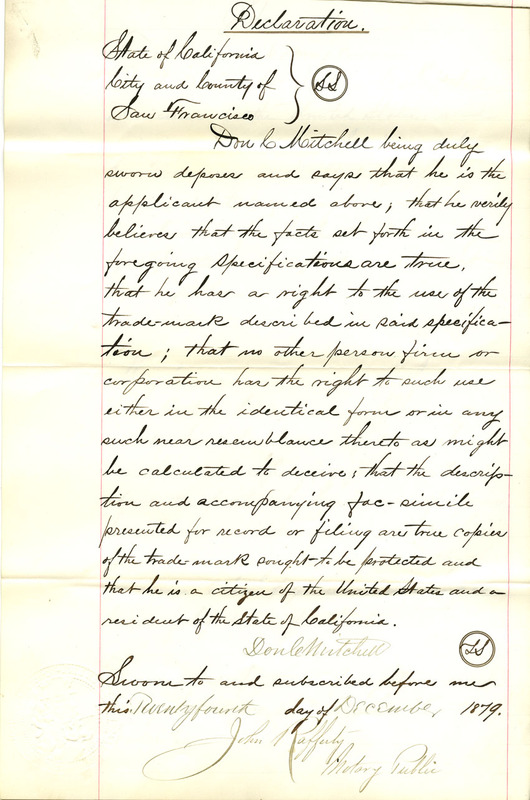 Declaration.
State of California
City and County of
San Francisco
SS
Don C Mitchell being duly
sworn deposes and says that he is the
applicant named above; that he verily
believes that the facts set forth in the
foregoing specifications are true,
that he has a right to the use of the
trade-mark described in said specifica-
tion; that no other person firm or
corporation has the right to such use
either in the identical form or in any
such near resemblance thereto as might
be calculated to deceive; that the descrip-
tion and accompanying fac-simile
presented for record or filing are true copies
of the trade-mark sought to be protected and
that he is a citizen of the United States and a
resident of the State of California.
Don C Mitchell
Sworn to and subscribed before me
this Twenty fourth day of December 1879.
John Rafferty
Notary Public